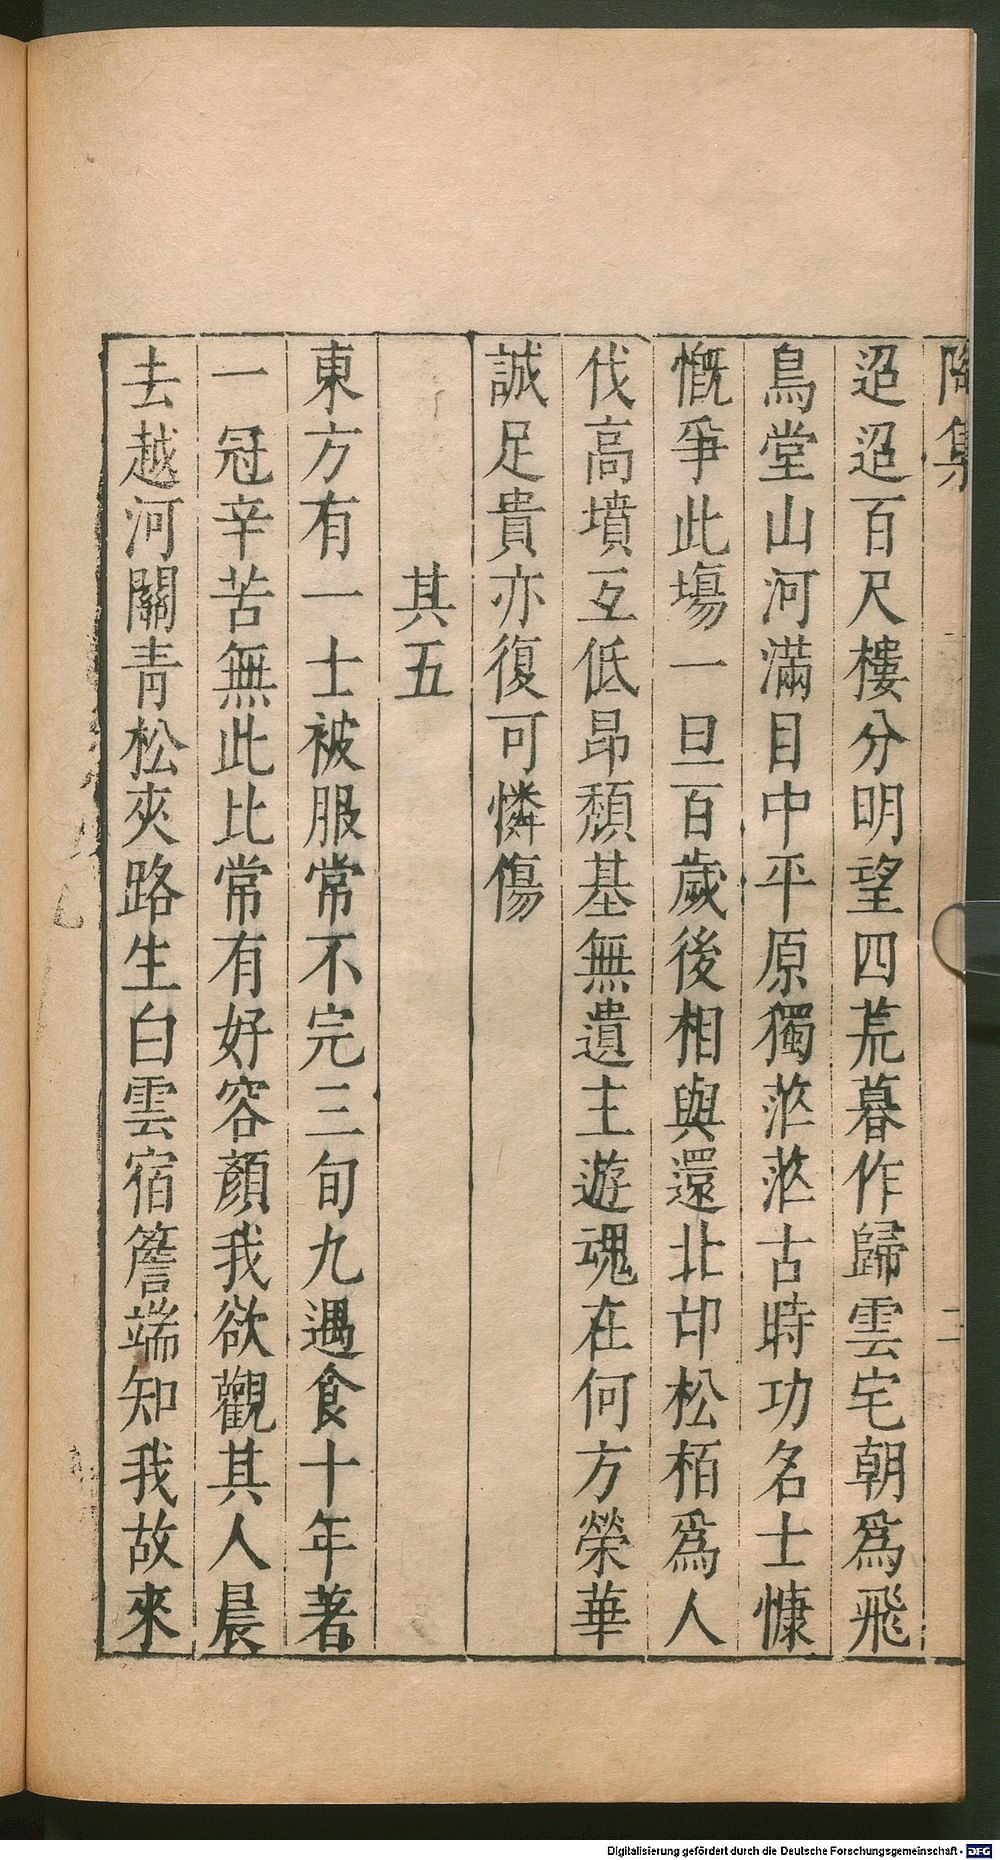 陶集 二
迢迢百尺樓分明望四荒暮作歸雲宅朝爲飛
鳥堂山河滿目中平原獨茫茫古時功名士慷
慨爭此塲一旦百歲後相與還北邙松栢爲人
伐高墳互低昂頹基無遺主遊魂在何方榮華
誠足貴亦復可憐傷
其五
東方有一士被服常不完三旬九遇食十年著
一冠辛苦無此比常有好容顏我欲觀其人晨
去越河關青松夾路生白雲宿簷端知我故來
Digitalisierung gefördert durch die Deutsche Forschungsgemeinschaft - DFG